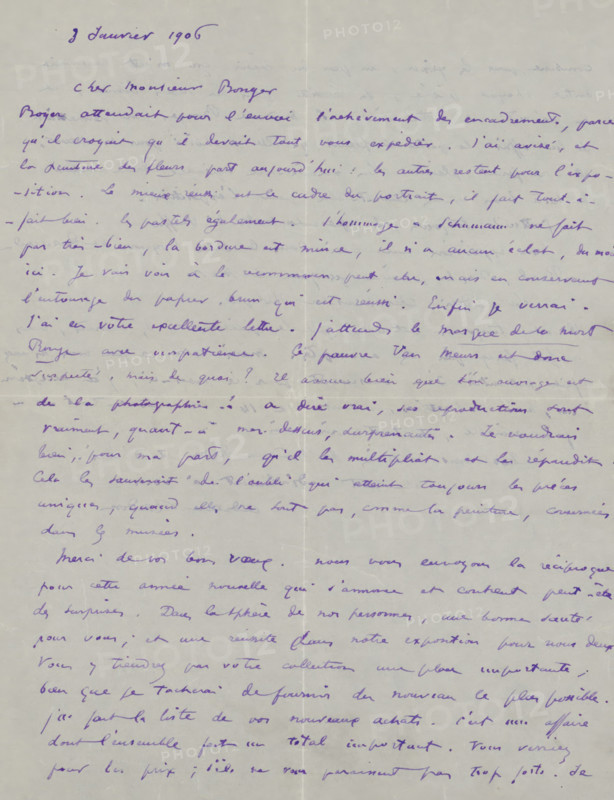 3 Janvier 1906
Cher Monsieur Bonger
Boyer attendait pour l'envoi l'achèvement des encadrements, parce
qu'il croyait qu'il devait tout vous expédier. J'ai avisé, et
la peinture des fleurs part aujourd'hui ; les autres restent pour l'expo-
-sition. Le mieux réussi est le cadre du portrait, il fait tout-à-
-fait bien. Les pastels également. L'hommage à Schumann ne fait
pas très-bien, la bordure est mince, il n'a aucun éclat, du moins
ici. Je vais voir à le recommencer peut être, mais en conservant
l'entourage du papier brun qui est réussi. Enfin je verrai.
J'ai eu votre excellente lettre. J'attends le masque de la mort
Rouge avec impatience. Ce pauvre Van Meurs est donc
, mais de quoi? Il avoue bien que son ouvrage est
de la photographie. À dire vrai, ses reproductions sont
vraiment, quant-à mes dessins, surprenantes. Je voudrais
bien, pour ma part, qu'il les multipliât et les répandit.
Cela les sauverait de l'oubli qui atteint toujours les pièces
uniques quand elles ne sont pas, comme la peinture, conservées
dans les musées.
Merci de vos bons vœux. nous vous envoyons la réciproque
pour cette année nouvelle qui s'annonce et contient peut-être
des surprises. Dans la sphère de nos personnes, une bonne santé
pour vous ; et une réussite dans notre exposition pour nous deux.
Vous y tiendrez par votre collection une place importante ;
bien que je tacherai de fournir du nouveau le plus possible.
j'ai fait la liste de vos nouveaux achats. C'est une affaire
dont l'ensemble fait un total important. Vous verrez
pour les prix ; s'ils ne vous paraissent pas trop forts. Je
PHOTO12